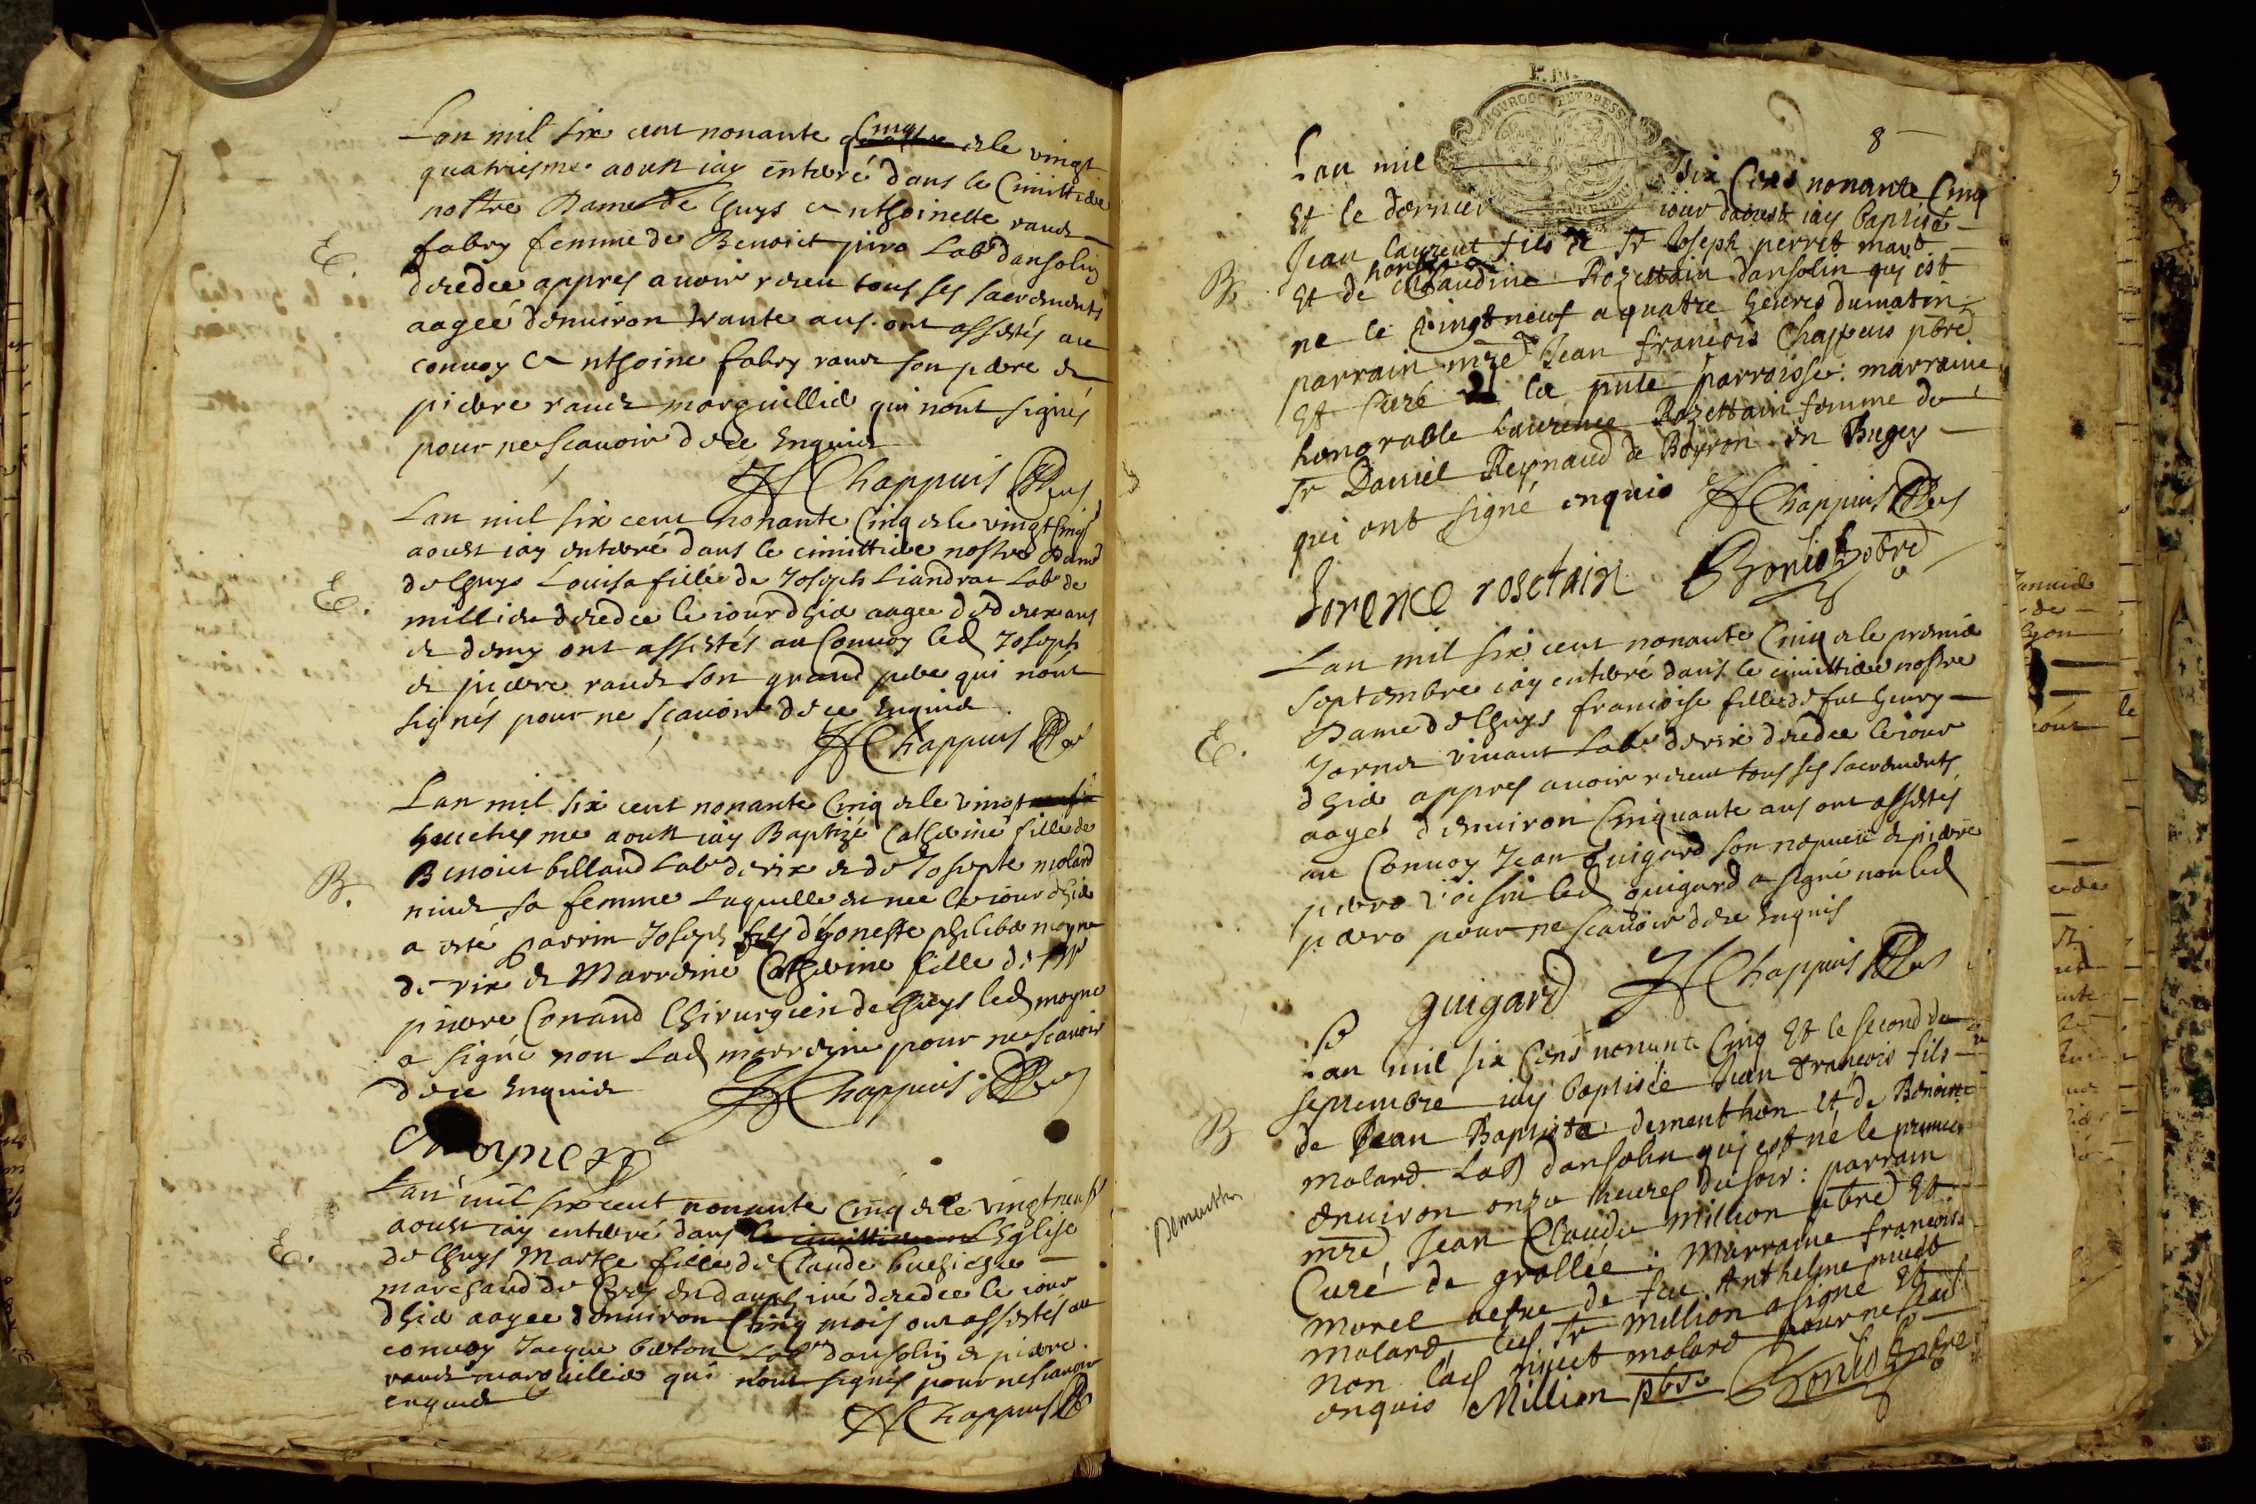 Lan mil six cent nonante quattre Cinq & le vingt
quatriesme aoust iay enterré dans le Cimittiere
nostre Dame de Lhuys Anthoinette raudz
E. fabry femme de Benoict piro Lab dansolin
decedee appres avoir receu tous ses sacrements
aagée denviron trante ans. ont assistés au
convoy Anthoine fabry raudz son pere &
pierre raudz marguillier qui nont signés
pour ne scavoir de ce Enquis
Chappuis
Lan mil six cent nonante Cinq & le vingt Cinq
aoust iay enterré dans le cimittiere nostre Dame
de Lhuys Louisa fille de Joseph Liandrat Lab de
E. millieu decedee le iour dhier aagee de deux ans
& demy ont assistés au Convoy led Joseph
& pierre raudz son grand pere qui nont
signés pour ne sçavoir de ce Enquis
Chappuis
Lan mil six cent nonante Cinq & le vingt
huictiesme aoust iay Baptizé Catherine fille de
Benoict billand Lab de rix & de Josepte molard
B. niudz sa femme Laquelle est nee le iour dhier
a esté parrin Joseph fils dhoneste philibe moyne
de rix & Marreine Catherine fille de Mr
pierre Conand Chirurgien de Lhuys led moyne
a signé non Lad marreine pour ne scavoir
de ce Enquise
Chappuis
Moyne
Lan mil six cent nonante Cinq & le vingt neuf
aoust iay enterré dans le cimittiere LEglise
E. de Lhuys Marthe fille de Claude
marchand de en dauphiné decedee le iour
dhier aagee denviron Cinq mois ont assistés au
convoy Jacque breton Lab dansolin & pierre
raudz marguillier qui nont signés pour ne scavoir
enquis
Chappuis
8
Lan mil six Cens nonante Cinq
Et le dernier iour daoust iay baptisé
Jean laurent fils de Sr Joseph perret mart
B. Et de honble Claudine Rozettain dansolin qui est
ne le vingt neuf a quatre heures du matin
parrain mre Jean francois Chappuis pbre
Et Curé de la pnte parroisse: marraine
honorable Laurence Rozettain femme de
Sr Daniel Reynaud de Beyron en Bugey
qui ont signé enquis Chappuis
Lorence rosetain pbre
Lan mil six cent nonante Cinq & le premier
septembre iay enterré dans le cimittiere nostre
Dame de Lhuys francoise fille de fut henry
E. vivant Lab de rix decedee le iour
dhier appres avoir receu tous ses sacrements
aagée denviron Cinquante ans ont assistés
au Convoy Jean Guigard son nepveu & pierre
piero voisin led guigard a signé non led
piero pour ne scavoir de ce Enquis
guigard Chappuis
Lan mil six Cens nonante Cinq Et le second de
septembre iay baptisée Jean francois fils
B de Jean Baptiste dementhon Et de Benoitte
molard Lab dansolin qui est né le premier
Dementhon
environ onze heures du soir: parrain
mre Jean Claude Million pbre Et
Curé de grollée: Marraine francoise
morel vefve de feu Anthelme niudt
molard, led Sr Million a signé Et
non lad niudt molard pour ne scav
enquis Million pbre pbre